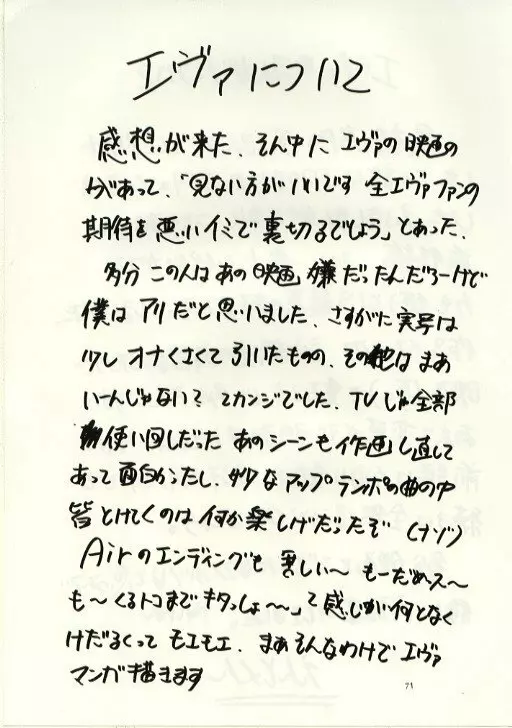 エヴァについて
感想が来た、そん中にエヴァの映画の
分があって、「見ない方がいいです 全エヴァファンの
期待を悪いイミで裏切るでしょう」とあった、
多分この人はあの映画嫌だったんだろーけど
僕はアリだと思いました、さすがに実写は
少しオナくさくて引いたものの、その他はまあ
いーんじゃない?てカンジでした、TVじゃ全部
使い回しだったあのシーンも作画し直して
あって面白かったし、妙なアップテンポの曲の中
皆とけてくのは何か楽しげだったぞ (ナゾ)
Airのエンディングも 美しい〜 もーだめっス〜
も〜くるトコまでキタっしょ〜〜」て感じが何となく
けだるくってモエモエ、まあそんなわけでエヴァ
マンガ描きます
71